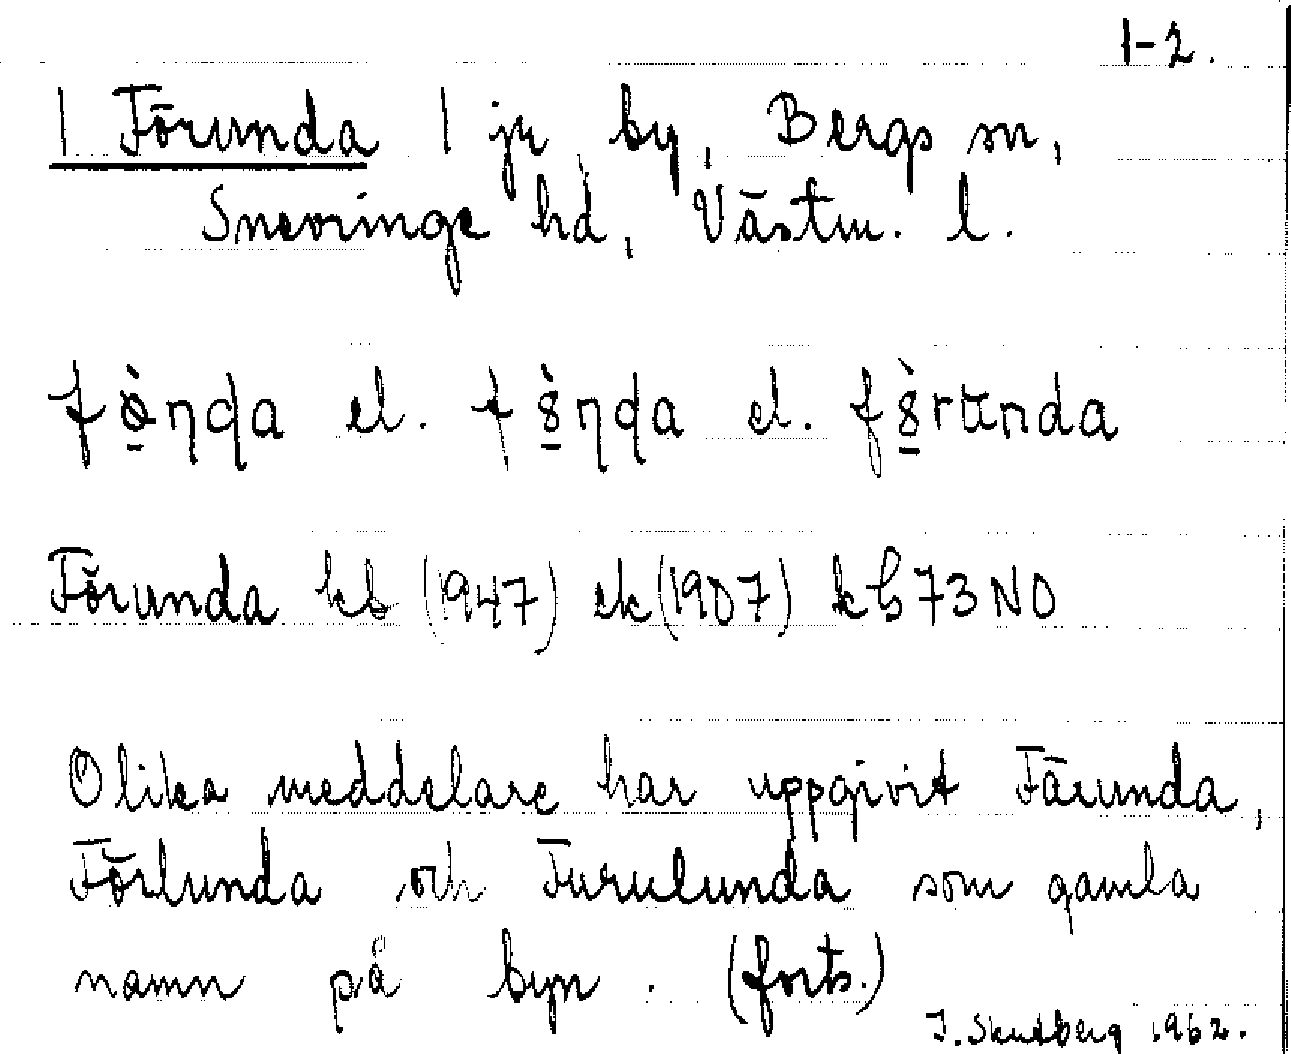 1-2.
| Förunda | ju by, Bergs sn,
Snevringe hd, Västm. l.
el. el.
Förunda kb (1947) ek (1907) kb 73 NO
Olika meddelare har uppgivit Färunda,
Förlunda och Furulunda som gamla
namn på byn. (forts.)
1962.